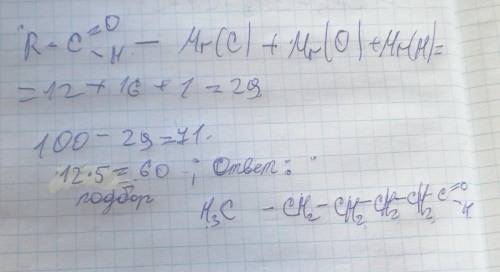 R - C =O - H — Mr(C) + Mr(O) + Mr(H) =
= 12 + 16 + 1 = 29
100 - 29 = 71.
12·5 = 60 ; Ответ:
подбор
H3C - CH2 - CH2 - CH2 - CH2 C =O - H